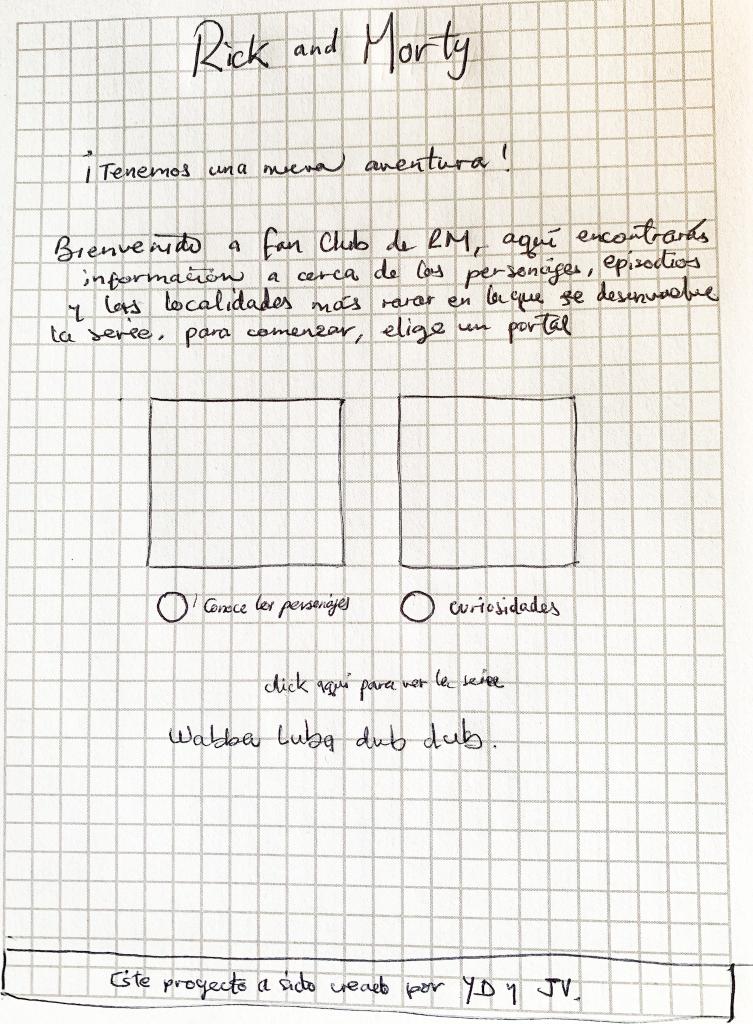 Rick and Morty
¡Tenemos una nueva aventura!
Bienvenido a fan Club de RM, aquí encontrarás
información a cerca de los personajes, episodios
y las localidades más raras en la que se desenvuelve
la serie, para comenzar, elige un portal
Conoce los personajes
curiosidades
click aquí para ver la serie
Wabba Luba dub dub.
Este proyecto a sido creado por YD y JV.